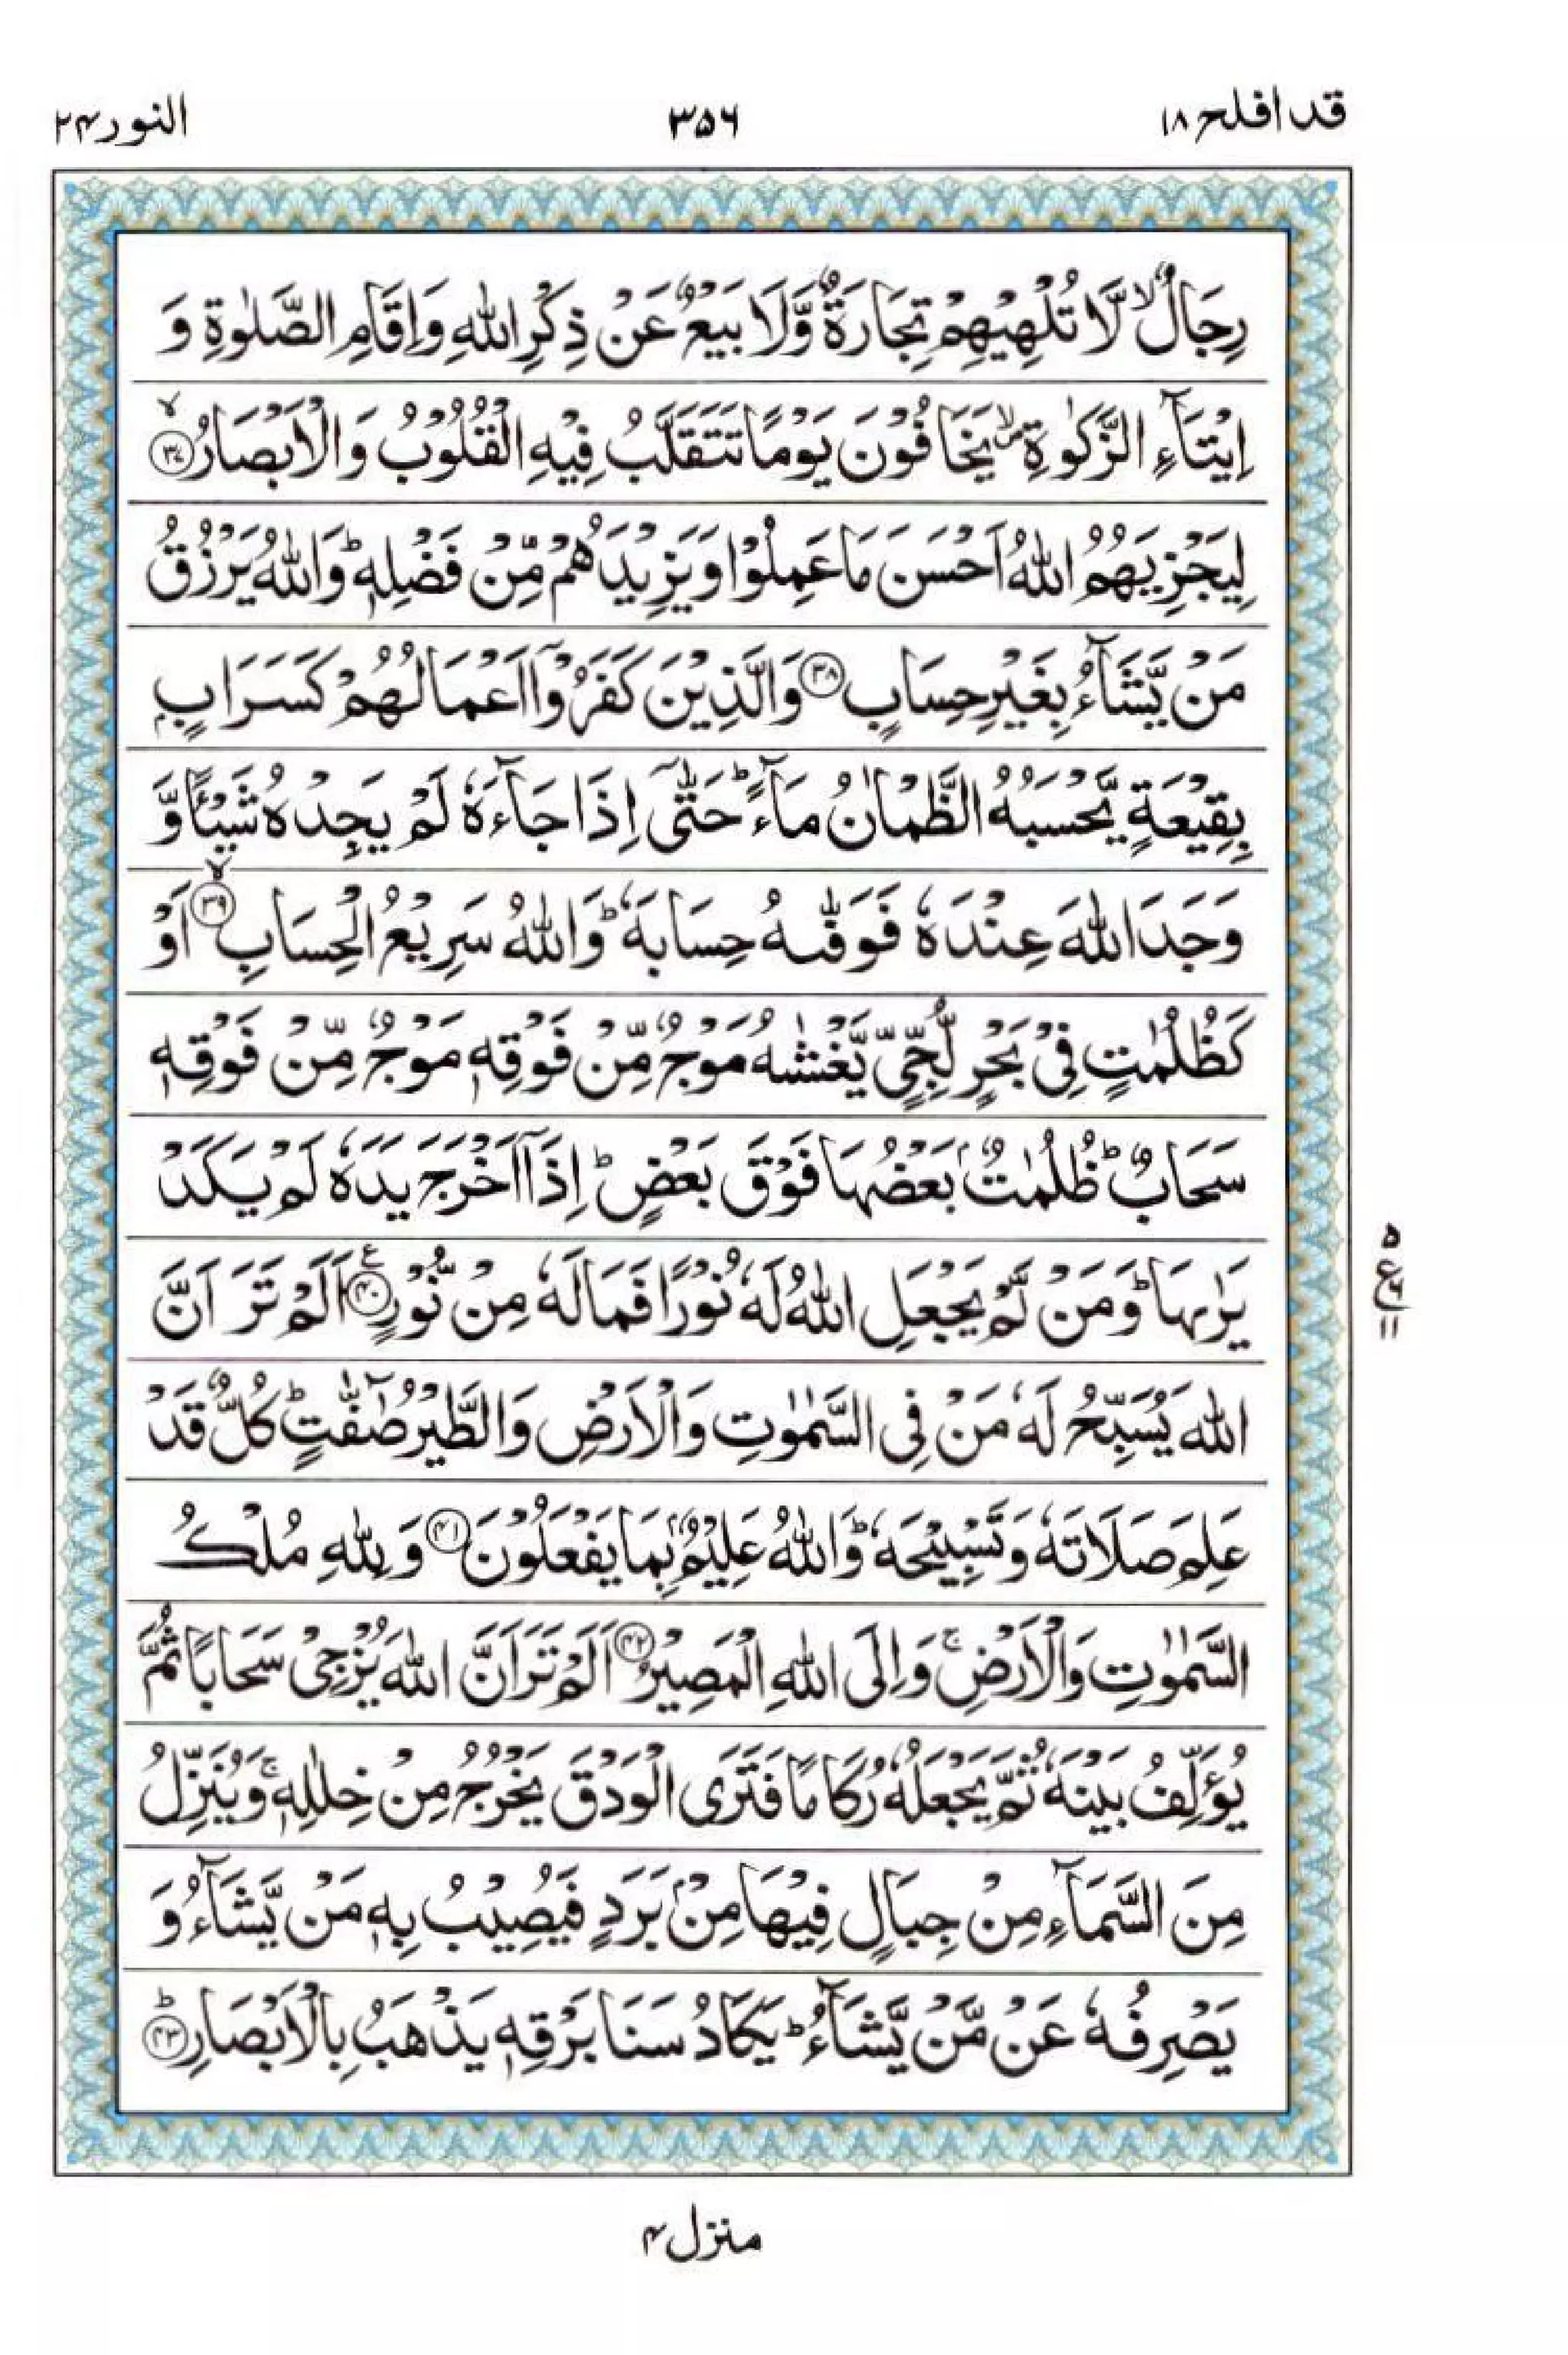 قد افلح ۱۸
۳۵۶
النور ۲۴
رِجَالٌ ۙ لَّا تُلْهِيْهِمْ تِجَارَةٌ وَّلَا بَيْعٌ عَنْ ذِكْرِ اللّٰهِ وَاِقَامِ الصَّلٰوةِ وَ
اِيْتَآءِ الزَّكٰوةِ ۙ يَخَافُوْنَ يَوْمًا تَتَقَلَّبُ فِيْهِ الْقُلُوْبُ وَالْاَبْصَارُ ۙ ﴿۳۷﴾
لِيَجْزِيَهُمُ اللّٰهُ اَحْسَنَ مَا عَمِلُوْا وَيَزِيْدَهُمْ مِّنْ فَضْلِهٖ ؕ وَاللّٰهُ يَرْزُقُ
مَنْ يَّشَآءُ بِغَيْرِ حِسَابٍ ﴿۳۸﴾ وَالَّذِيْنَ كَفَرُوْۤا اَعْمَالُهُمْ كَسَرَابٍۭ
بِقِيْعَةٍ يَّحْسَبُهُ الظَّمْاٰنُ مَآءً ؕ حَتّٰۤى اِذَا جَآءَهٗ لَمْ يَجِدْهُ شَيْـًٔا وَّ
وَجَدَ اللّٰهَ عِنْدَهٗ فَوَفّٰىهُ حِسَابَهٗ ؕ وَاللّٰهُ سَرِيْعُ الْحِسَابِ ۙ ﴿۳۹﴾ اَوْ
كَظُلُمٰتٍ فِيْ بَحْرٍ لُّجِّيٍّ يَّغْشٰىهُ مَوْجٌ مِّنْ فَوْقِهٖ مَوْجٌ مِّنْ فَوْقِهٖ
سَحَابٌ ؕ ظُلُمٰتٌۢ بَعْضُهَا فَوْقَ بَعْضٍ ؕ اِذَاۤ اَخْرَجَ يَدَهٗ لَمْ يَكَدْ
يَرٰىهَا ؕ وَمَنْ لَّمْ يَجْعَلِ اللّٰهُ لَهٗ نُوْرًا فَمَا لَهٗ مِنْ نُّوْرٍ ﴿۴۰﴾ ع اَلَمْ تَرَ اَنَّ
اللّٰهَ يُسَبِّحُ لَهٗ مَنْ فِي السَّمٰوٰتِ وَالْاَرْضِ وَالطَّيْرُ صٰٓفّٰتٍ ؕ كُلٌّ قَدْ
عَلِمَ صَلَاتَهٗ وَتَسْبِيْحَهٗ ؕ وَاللّٰهُ عَلِيْمٌۢ بِمَا يَفْعَلُوْنَ ﴿۴۱﴾ وَلِلّٰهِ مُلْكُ
السَّمٰوٰتِ وَالْاَرْضِ ۚ وَاِلَى اللّٰهِ الْمَصِيْرُ ﴿۴۲﴾ اَلَمْ تَرَ اَنَّ اللّٰهَ يُزْجِيْ سَحَابًا ثُمَّ
يُؤَلِّفُ بَيْنَهٗ ثُمَّ يَجْعَلُهٗ رُكَامًا فَتَرَى الْوَدْقَ يَخْرُجُ مِنْ خِلٰلِهٖ ۚ وَيُنَزِّلُ
مِنَ السَّمَآءِ مِنْ جِبَالٍ فِيْهَا مِنْۢ بَرَدٍ فَيُصِيْبُ بِهٖ مَنْ يَّشَآءُ وَ
يَصْرِفُهٗ عَنْ مَّنْ يَّشَآءُ ؕ يَكَادُ سَنَا بَرْقِهٖ يَذْهَبُ بِالْاَبْصَارِ ؕ ﴿۴۳﴾
۵
ع
۱۱
منزل ۴